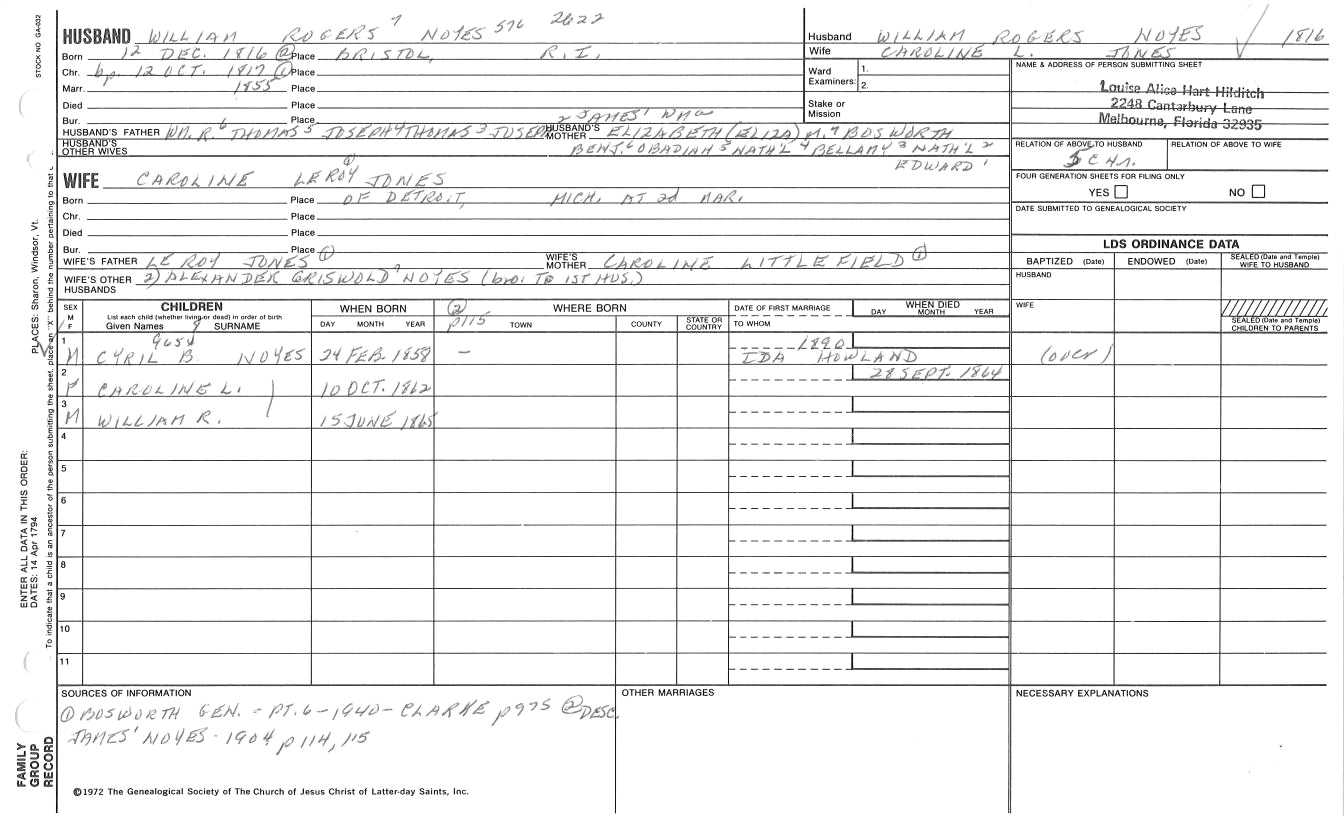 STOCK NO GA-032
PLACES: Sharon, Windsor, Vt.
ENTER ALL DATA IN THIS ORDER:
DATES: 14 Apr 1794
To indicate that a child is an ancestor of the person submitting the sheet, place an "X" behind the number pertaining to that
FAMILY
GROUP
RECORD
HUSBAND WILLIAM ROGERS 7 NOYES 576 2622
Born 12 DEC. 1816 ② Place BRISTOL, R.I.
Chr. bp. 12 OCT. 1817 ① Place
Marr. 1855 Place
Died Place
Bur. Place
2 JAMES' WM
HUSBAND'S FATHER WM. R. 6 THOMAS 5 JOSEPH 4 THOMAS 3 JOSEPH HUSBAND'S MOTHER ELIZABETH (ELIZA) M. 7 BOSWORTH
HUSBAND'S OTHER WIVES BENJ. 6 OBADIAH 5 NATH'L 4 BELLAMY 3 NATH'L 2
EDWARD 1
WIFE CAROLINE LEROY ① JONES
Born Place OF DETROIT, MICH. AT 2d MAR.
Chr. Place
Died Place
Bur. Place
WIFE'S FATHER LE ROY JONES ① WIFE'S MOTHER CAROLINE LITTLEFIELD ①
WIFE'S OTHER HUSBANDS 2) ALEXANDER GRISWOLD 7 NOYES (bro. TO 1ST HUS.)
Husband WILLIAM ROGERS NOYES 1816
Wife CAROLINE L. JONES
Ward Examiners: 1.
2.
Stake or Mission
NAME & ADDRESS OF PERSON SUBMITTING SHEET
Louise Alice Hart Hilditch
2248 Cantarbury Lane
Melbourne, Florida 32935
RELATION OF ABOVE TO HUSBAND RELATION OF ABOVE TO WIFE
FOUR GENERATION SHEETS FOR FILING ONLY
YES NO
DATE SUBMITTED TO GENEALOGICAL SOCIETY
LDS ORDINANCE DATA
BAPTIZED (Date) ENDOWED (Date) SEALED (Date and Temple) WIFE TO HUSBAND
HUSBAND
WIFE
SEALED (Date and Temple) CHILDREN TO PARENTS
SEX M F CHILDREN WHEN BORN ② p115 WHERE BORN DATE OF FIRST MARRIAGE WHEN DIED
List each child (whether living or dead) in order of birth
Given Names 8 SURNAME DAY MONTH YEAR TOWN COUNTY STATE OR COUNTRY TO WHOM DAY MONTH YEAR
1 M CYRIL B NOYES 24 FEB. 1858 — 1890 IDA HOWLAND (over)
2 F CAROLINE L. 10 OCT. 1862 28 SEPT. 1864
3 M WILLIAM R. 15 JUNE 1865
4
5
6
7
8
9
10
11
SOURCES OF INFORMATION
① BOSWORTH GEN. - PT. 6 - 1940 - CLARKE p975 ② DESC.
JAMES' NOYES - 1904 p 114, 115
OTHER MARRIAGES
NECESSARY EXPLANATIONS
©1972 The Genealogical Society of The Church of Jesus Christ of Latter-day Saints, Inc.